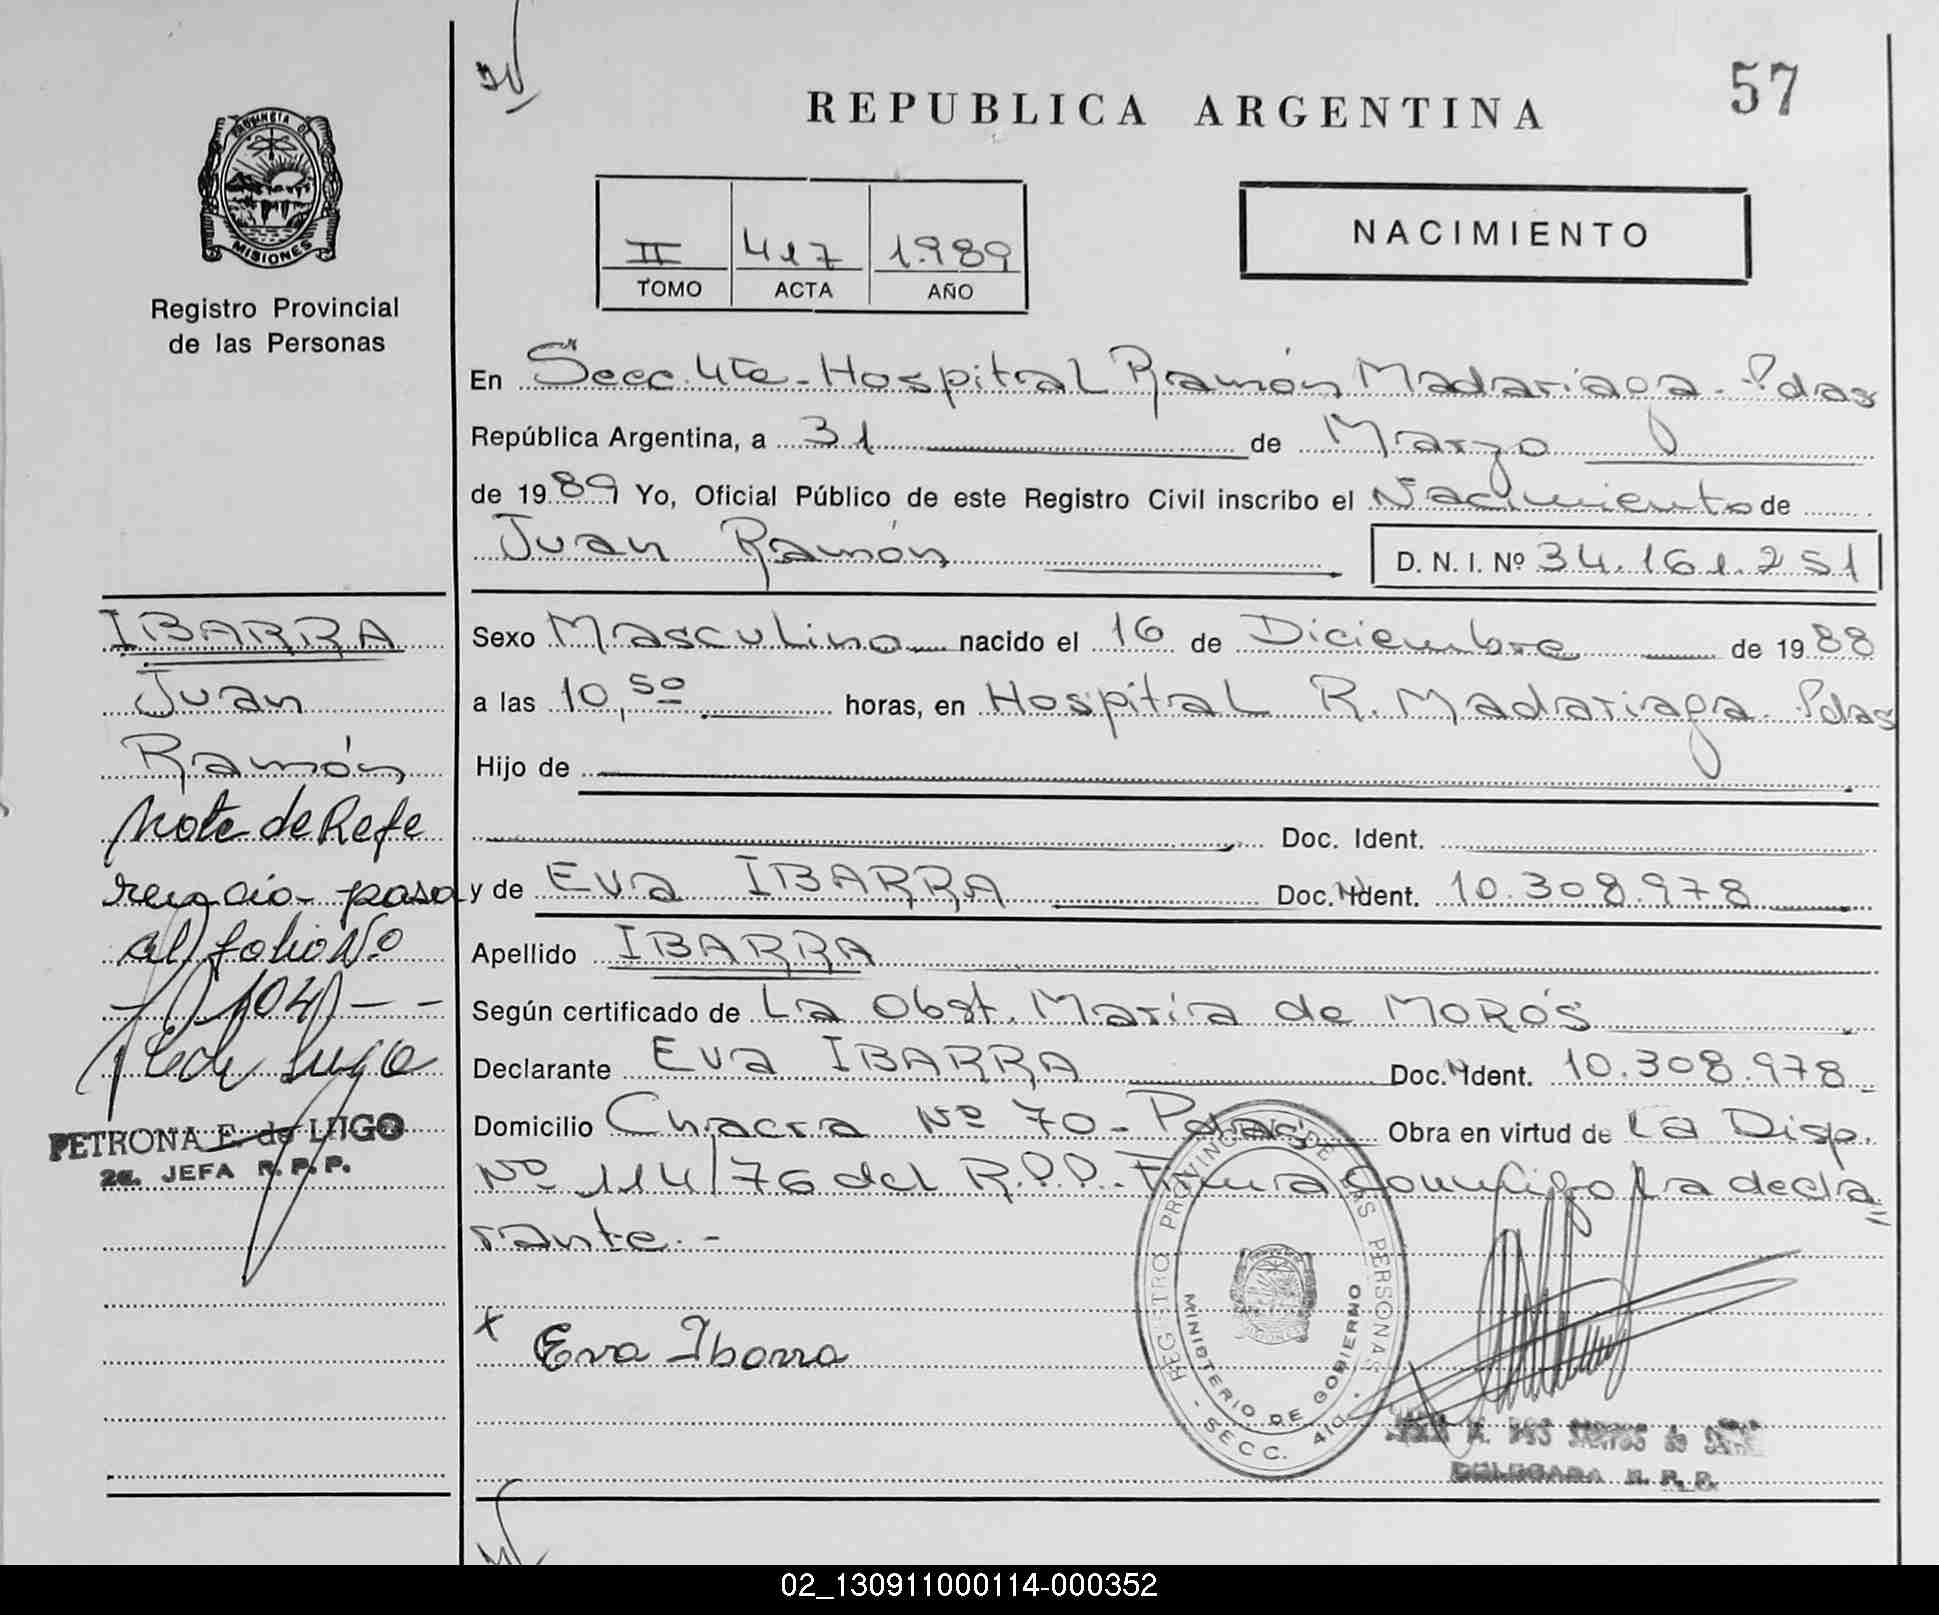 57
REPUBLICA ARGENTINA
PROVINCIA DE
MISIONES
Registro Provincial
de las Personas
II 417 1.989
TOMO ACTA AÑO
NACIMIENTO
En Secc. 4ta - Hospital Ramón Madariaga - Pdas
República Argentina, a 31 de Marzo
de 1989 Yo, Oficial Público de este Registro Civil inscribo el Nacimiento de
Juan Ramón D. N. I. Nº 34.161.251
Sexo Masculino nacido el 16 de Diciembre de 1988
a las 10,50 horas, en Hospital R. Madariaga. Pdas
Hijo de
Doc. Ident.
y de Eva IBARRA Doc. Ident. 10.308.978
Apellido IBARRA
Según certificado de La Obst. María de MORÓS
Declarante Eva IBARRA Doc. Ident. 10.308.978
Domicilio Chacra Nº 70 - Pdas Obra en virtud de La Disp.
Nº 114/76 del R.P.P. Firma conmigo La decla
rante. -
x Eva Ibarra
REGISTRO PROVINCIAL DE LAS PERSONAS
MINISTERIO DE GOBIERNO
- SECC. 4ta -
DELEGADA R. P. P.
IBARRA
Juan
Ramón
Nota de Refe
rencia - pasa
al folio Nº
PETRONA E. de LUGO
2a. JEFA R. P. P.
02_130911000114-000352